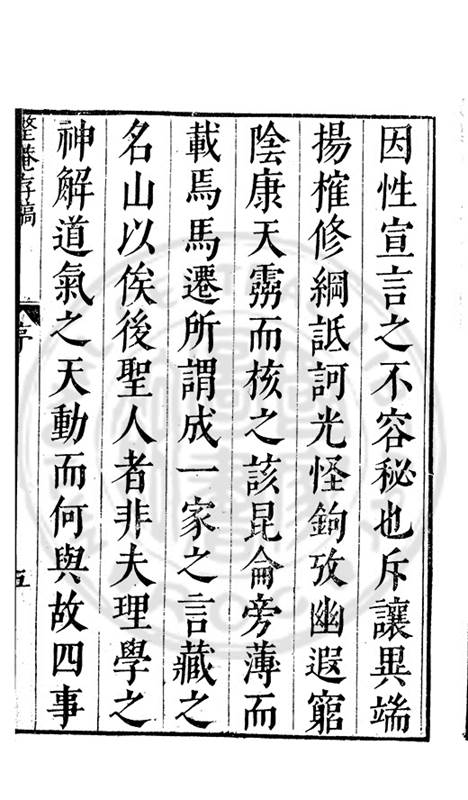 因性宣言之不容秘也斥讓異端
揚搉修綱詆訶光怪鉤攷幽遐窮
陰康天霛而核之該昆侖旁薄而
載焉馬遷所謂成一家之言藏之
名山以俟後聖人者非夫理學之
神解道氣之天動而何與故四事
整菴存稿
序
五